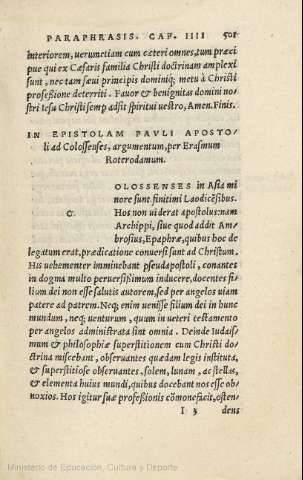 PARAPHRASIS. CAP. IIII 501
interiorem, ueruntiam cum cæteri omnes, tum præci
pue qui ex Cæsaris familia Christi doctrinam amplexi
sunt, nec tam sæui principis dominiq; metu à Christi
professione deterriti. Fauor & benignitas domini no=
stri Iesu Christi semp adsit spiritui uestro, Amen. Finis.
IN EPISTOLAM PAVLI APOSTO/
li ad Colossenses, argumentum, per Erasmum
Roterodamum.
C
OLOSSENSES in Asia mi
nore sunt finitimi Laodicẽsibus.
Hos non uiderat apostolus: nam
Archippi, siue quod addit Am/
brosius, Epaphræ, quibus hoc de
legatum erat, prædicatione conuersi sunt ad Christum.
His uehementer imminebant pseudapostoli, conantes
in dogma multo peruersißimum inducere, docentes fi=
lium dei non esse salutis autorem, sed per angelos uiam
patere ad patrem. Neq; enim uenisse filium dei in hunc
mundum, neq; uenturum, quum in ueteri testamento
per angelos administrata sint omnia. Deinde Iudais/
mum & philosophiæ superstitionem cum Christi do=
ctrina miscebant, obseruantes quædam legis instituta,
& superstitiose obseruantes, solem, lunam, ac stellas,
& elementa huius mundi, quibus docebant nos esse ob=
noxios. Hos igitur suæ professionis cõmonefacit, osten/
I 3 dens
Ministerio de Educación, Cultura y Deporte